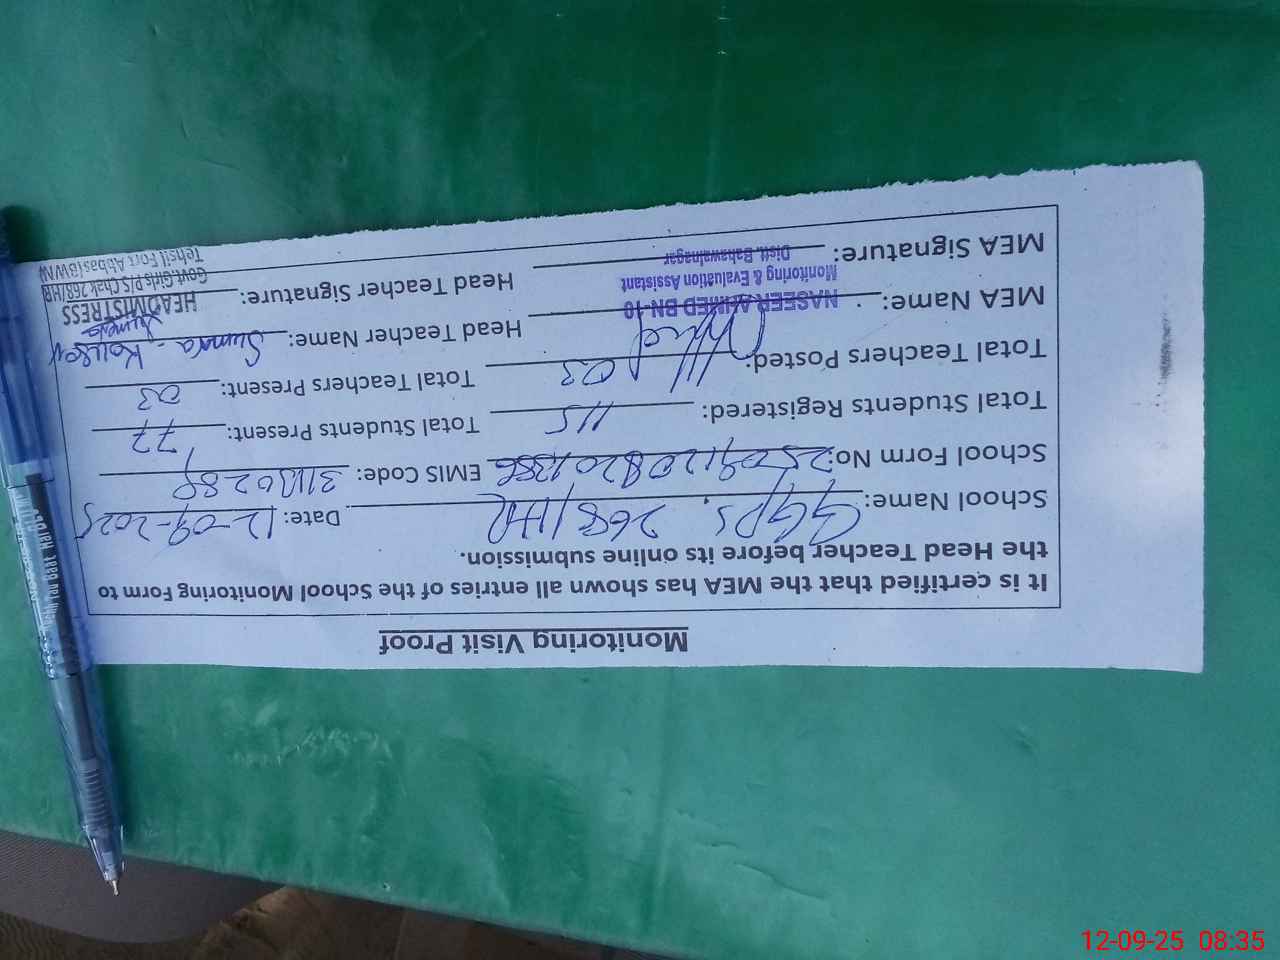 Monitoring Visit Proof
It is certified that the MEA has shown all entries of the School Monitoring Form to
the Head Teacher before its online submission.
School Name: GGPS 268/HR Date: 12-09-2025
School Form No: EMIS Code:
Total Students Registered: 115 Total Students Present: 77
Total Teachers Posted: 03 Total Teachers Present: 03
MEA Name: NASEER AHMED BN-10 Head Teacher Name:
Monitoring & Evaluation Assistant
Distt. Bahawalnagar
MEA Signature: Head Teacher Signature:
HEADMISTRESS
Govt. Girls P/S Chak 268/HR
Tehsil Fort Abbas (BWN)
12-09-25 08:35